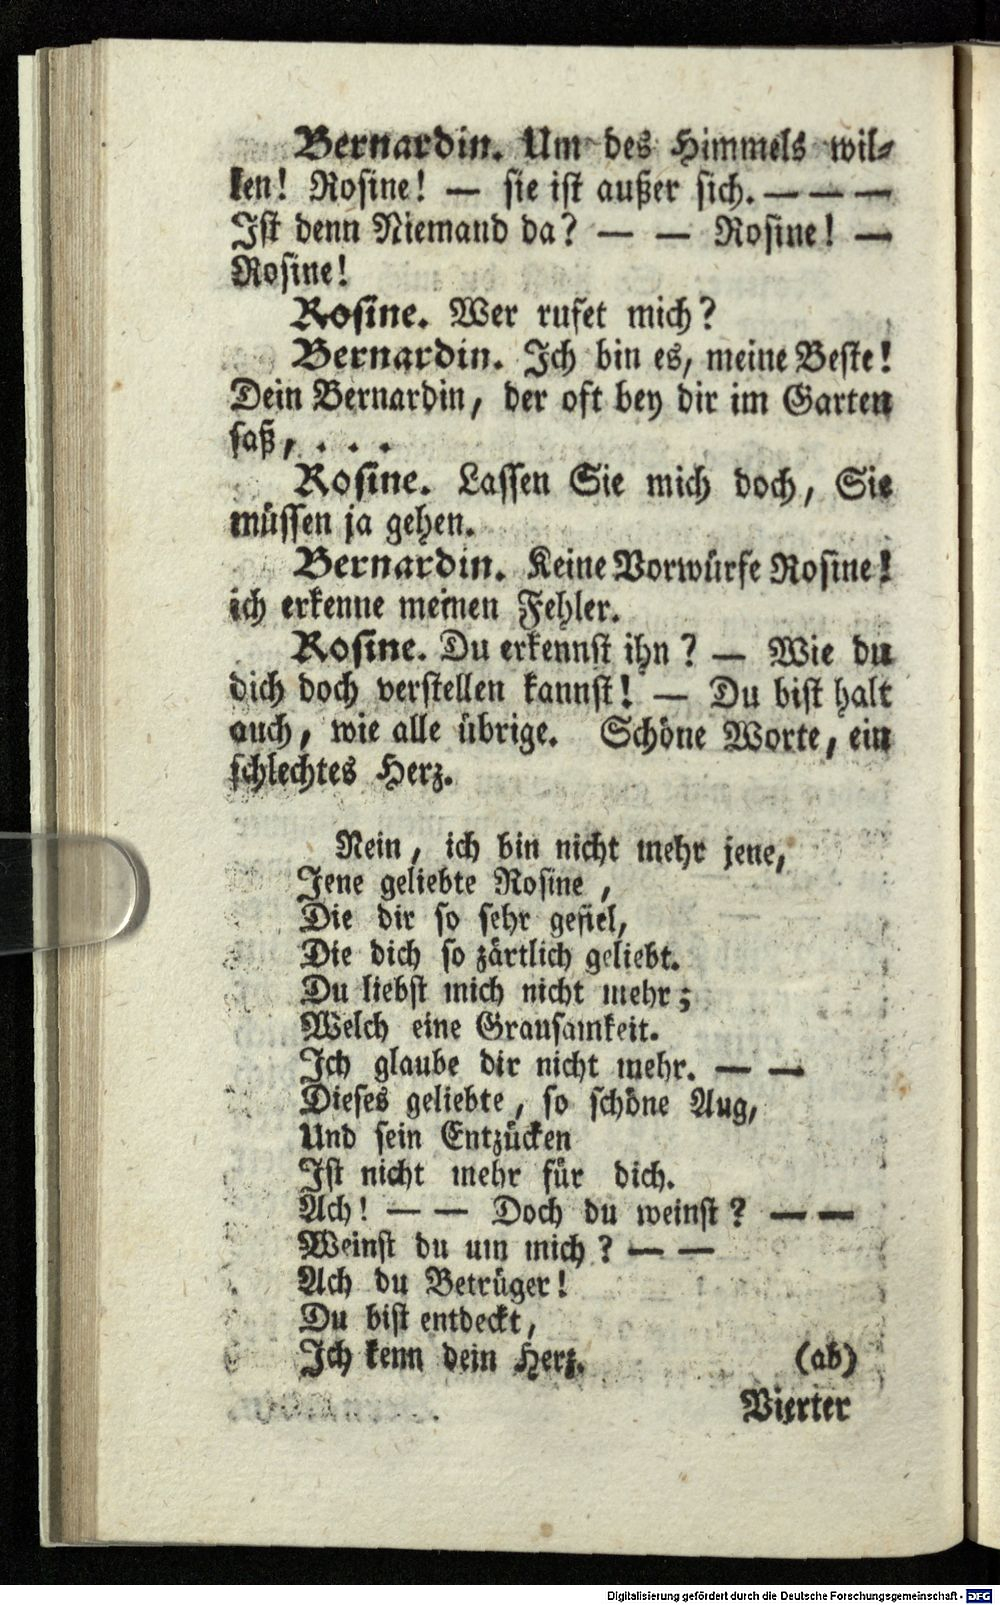 Bernardin. Um des Himmels wil-
len! Rosine! — sie ist außer sich. — — —
Ist denn Niemand da? — — Rosine! —
Rosine!
Rosine. Wer rufet mich?
Bernardin. Ich bin es, meine Beste!
Dein Bernardin, der oft bey dir im Garten
saß, . . .
Rosine. Lassen Sie mich doch, Sie
müssen ja gehen.
Bernardin. Keine Vorwürfe Rosine!
ich erkenne meinen Fehler.
Rosine. Du erkennst ihn? — Wie du
dich doch verstellen kannst! — Du bist halt
auch, wie alle übrige. Schöne Worte, ein
schlechtes Herz.
Nein, ich bin nicht mehr jene,
Jene geliebte Rosine,
Die dir so sehr gefiel,
Die dich so zärtlich geliebt.
Du liebst mich nicht mehr;
Welch eine Grausamkeit.
Ich glaube dir nicht mehr. — —
Dieses geliebte, so schöne Aug,
Und sein Entzücken
Ist nicht mehr für dich.
Ach! — — Doch du weinst? — —
Weinst du um mich? — —
Ach du Betrüger!
Du bist entdeckt,
Ich kenn dein Herz. (ab)
Vierter
Digitalisierung gefördert durch die Deutsche Forschungsgemeinschaft - DFG